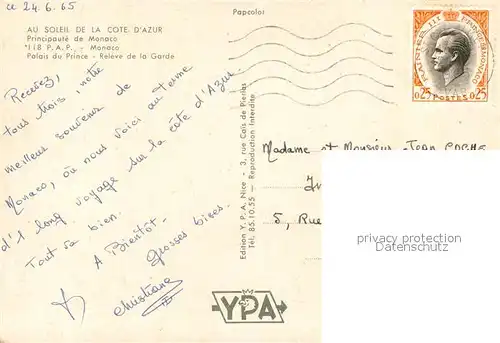 Le 24.6.65
Papcolor
AU SOLEIL DE LA COTE D'AZUR
Principauté de Monaco
118 P.A.P. - Monaco
Palais du Prince - Relève de la Garde
RAINIER III PRINCE DE MONACO
0,25 POSTES 0,25
Recevez,
tous trois, notre
meilleur souvenir de
Monaco, où nous voici au terme
d'1 long voyage sur la côte d'Azur
Tout va bien.
A Bientôt.
Grosses bises.
Christiane
Edition Y.P.A. Nice - 3, rue Cais de Pierlas
Tél. 85.10.55 - Reproduction Interdite
Madame et Monsieur Jean
5, Rue
YPA
privacy protection
Datenschutz